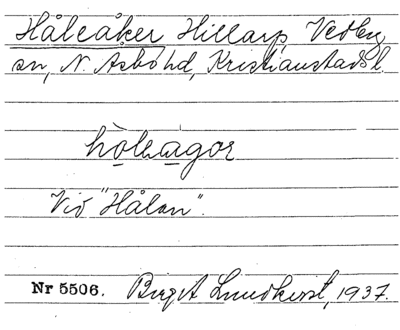 Håleåker Hillarp Vedby
sn, N. Åsbo hd, Kristianstads l.
hò̱lea̱gor
Vid "Hålan".
Nr 5506. Birgit Lundkvist, 1937.